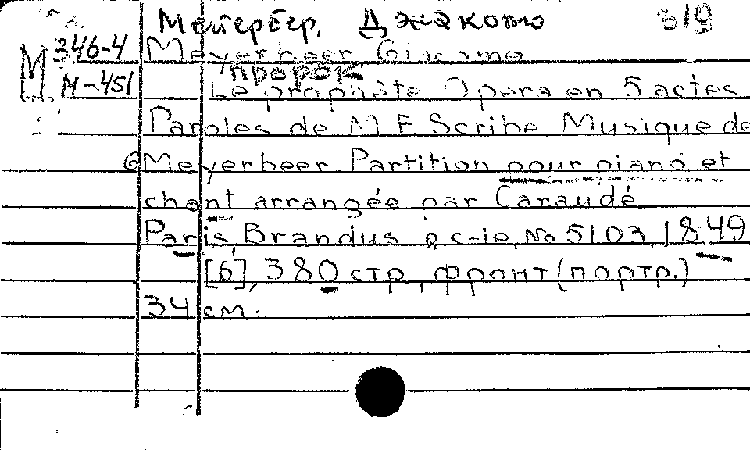 Мейербер, Джакомо 319
М 346-4 Meyerbeer Giacomo
Пророк
М-451 Le prophète Opera en 5 actes
Paroles de M E Scribe Musique de
G Meyerbeer Partition pour piano et
chant arrangée par Caraudé
Paris, Brandus & c-ie, № 5103, 1849
[6], 380 стр, фронт (портр.)
34 см.